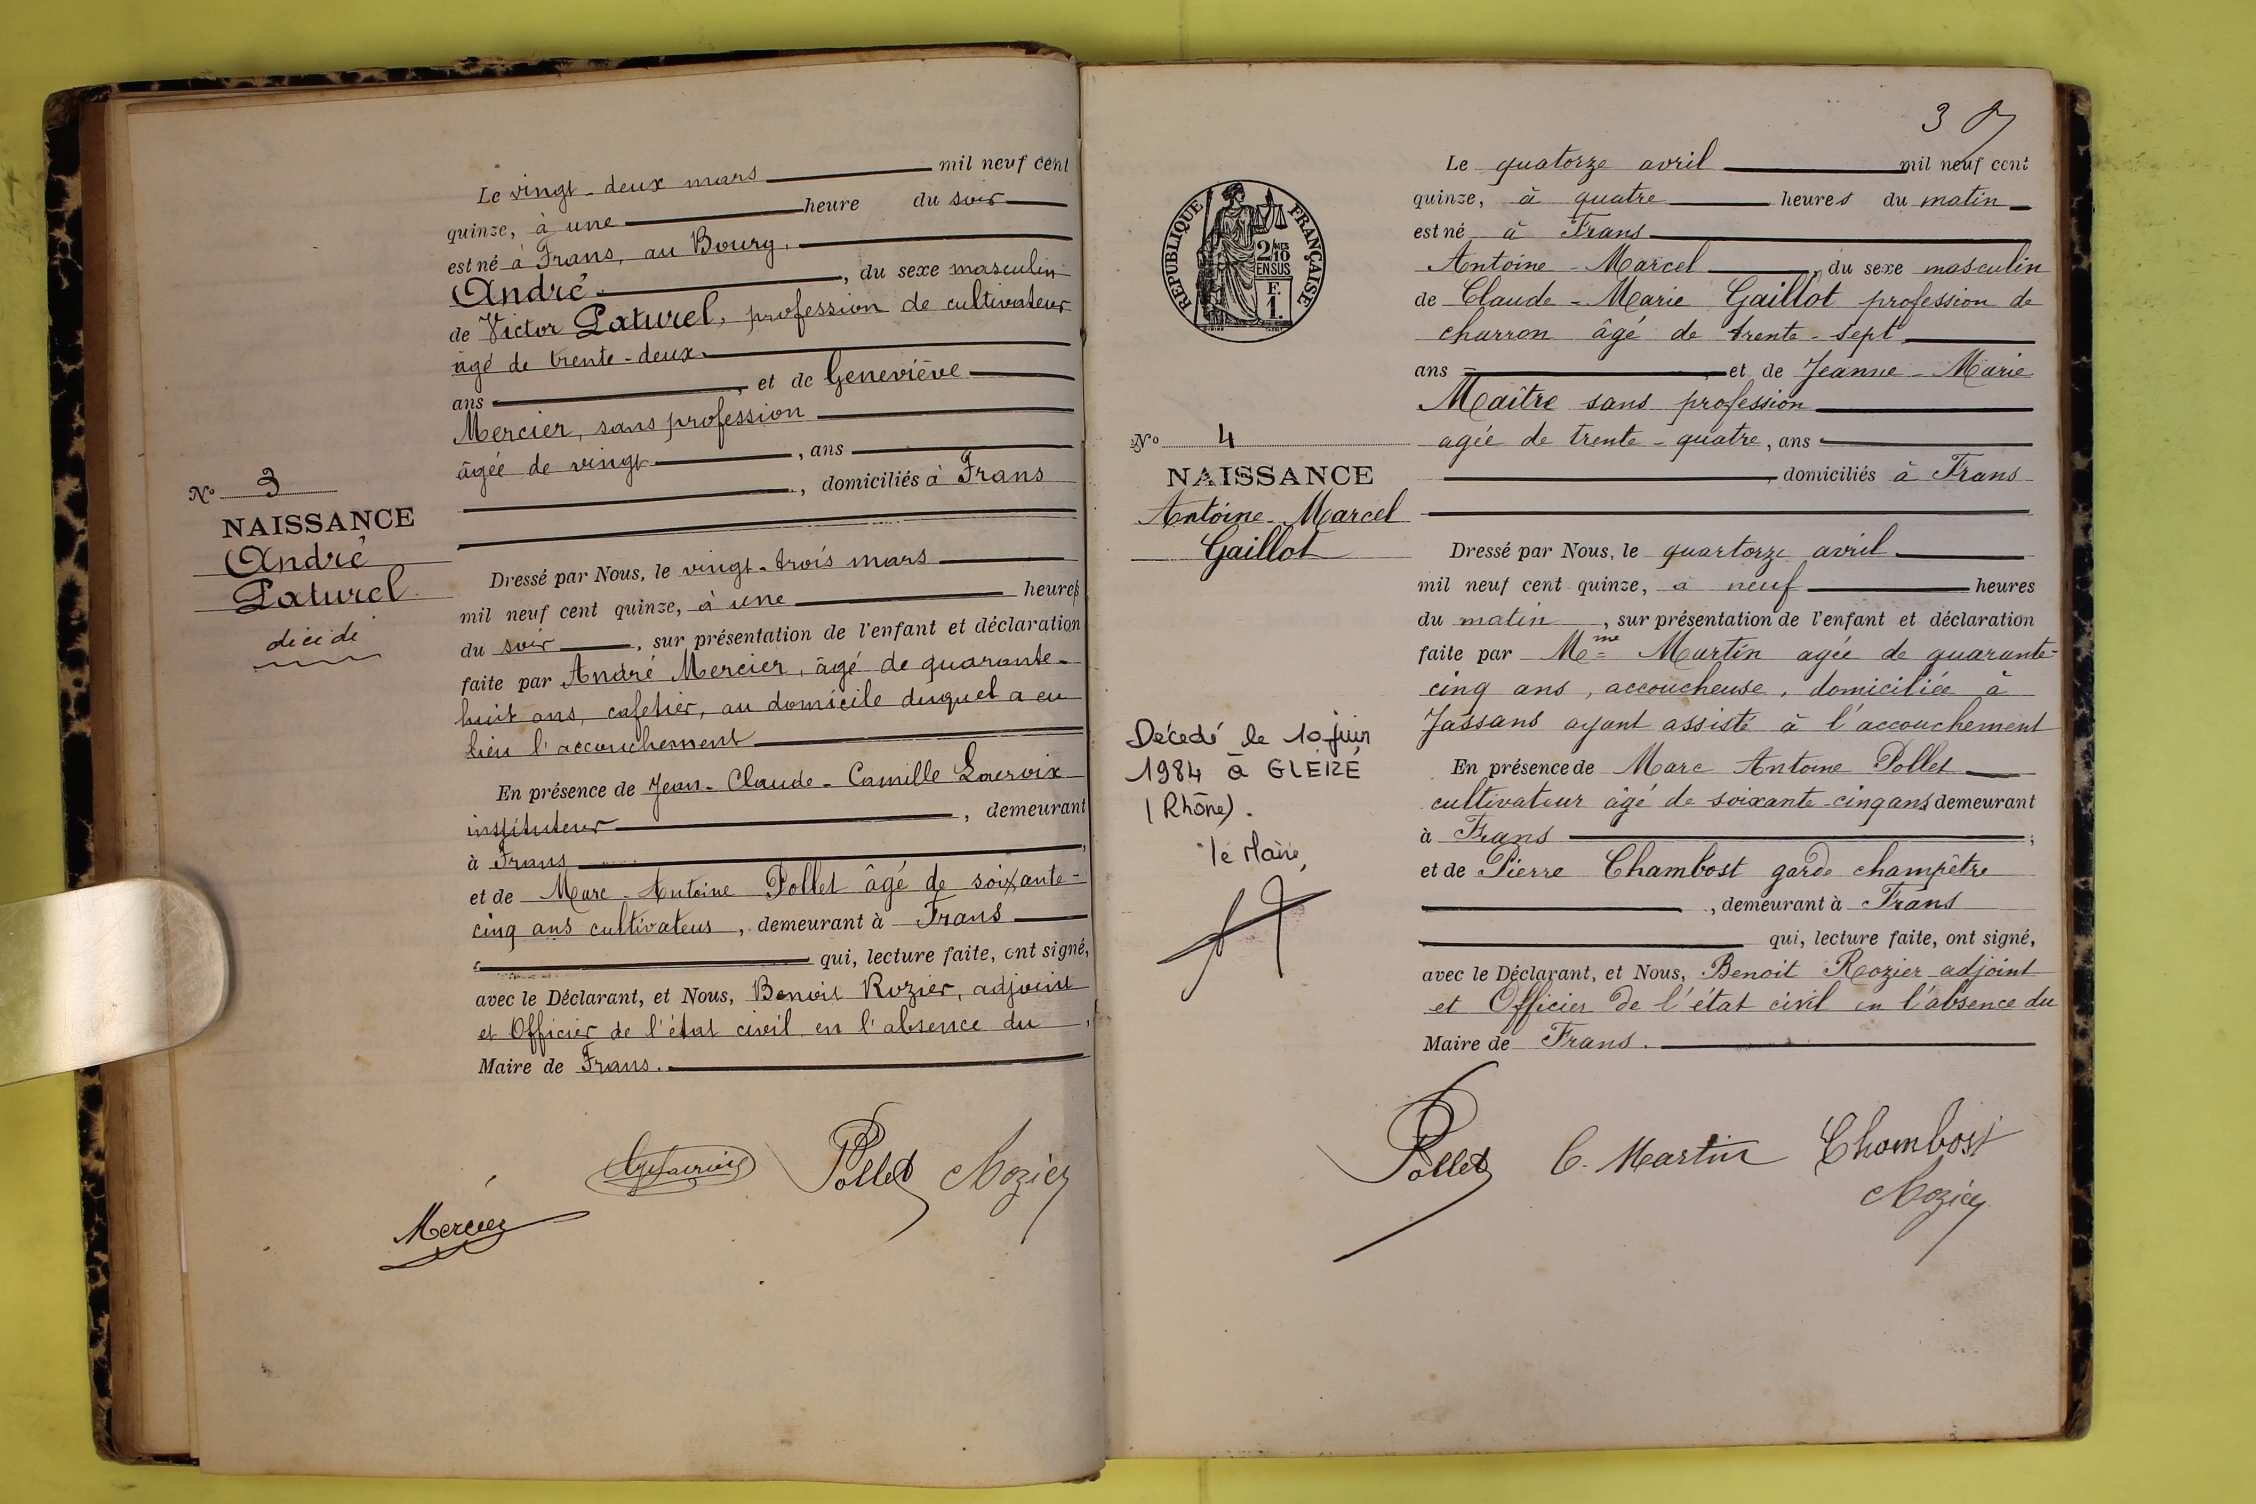 Le vingt-deux mars mil neuf cent
quinze, à une heure du soir
est né à Frans, au Bourg.
André, du sexe masculin
de Victor Paturel, profession de cultivateur
âgé de trente-deux
ans, et de Geneviève
Mercier, sans profession
âgée de vingt, ans
, domiciliés à Frans
No 3
NAISSANCE
André
Paturel
décédé
Dressé par Nous, le vingt-trois mars
mil neuf cent quinze, à une heures
du soir, sur présentation de l'enfant et déclaration
faite par André Mercier, âgé de quarante-
huit ans, cafetier, au domicile duquel a eu
lieu l'accouchement
En présence de Jean-Claude-Camille Lacroix
instituteur, demeurant
à Frans,
et de Marc-Antoine Pollet âgé de soixante-
cinq ans cultivateur, demeurant à Frans
qui, lecture faite, ont signé,
avec le Déclarant, et Nous, Benoit Rozier, adjoint
et Officier de l'état civil en l'absence du
Maire de Frans.
Pollet Rozier
Mercier
3
Le quatorze avril mil neuf cent
quinze, à quatre heures du matin
est né à Frans
Antoine-Marcel, du sexe masculin
de Claude-Marie Gaillot profession de
charron âgé de trente-sept
ans, et de Jeanne-Marie
Maître sans profession
agée de trente-quatre, ans
, domiciliés à Frans
REPUBLIQUE FRANÇAISE
2/10
EN SUS
F.
1.
No 4
NAISSANCE
Antoine-Marcel
Gaillot
Décédé le 10 juin
1984 à GLEIZÉ
(Rhône).
le Maire,
Dressé par Nous, le quartorze avril
mil neuf cent quinze, à neuf heures
du matin, sur présentation de l'enfant et déclaration
faite par Mme Martin agée de quarante-
cinq ans, accoucheuse, domiciliée à
Jassans ayant assisté à l'accouchement
En présence de Marc Antoine Pollet
cultivateur âgé de soixante-cinq ans demeurant
à Frans ;
et de Pierre Chambost garde champêtre
, demeurant à Frans
qui, lecture faite, ont signé,
avec le Déclarant, et Nous, Benoit Rozier adjoint
et Officier de l'état civil en l'absence du
Maire de Frans.
Pollet C. Martin Chambost
Rozier